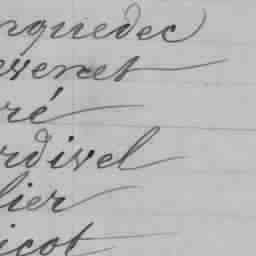 nguedec
evenet
ré
rdivel
lier
icot